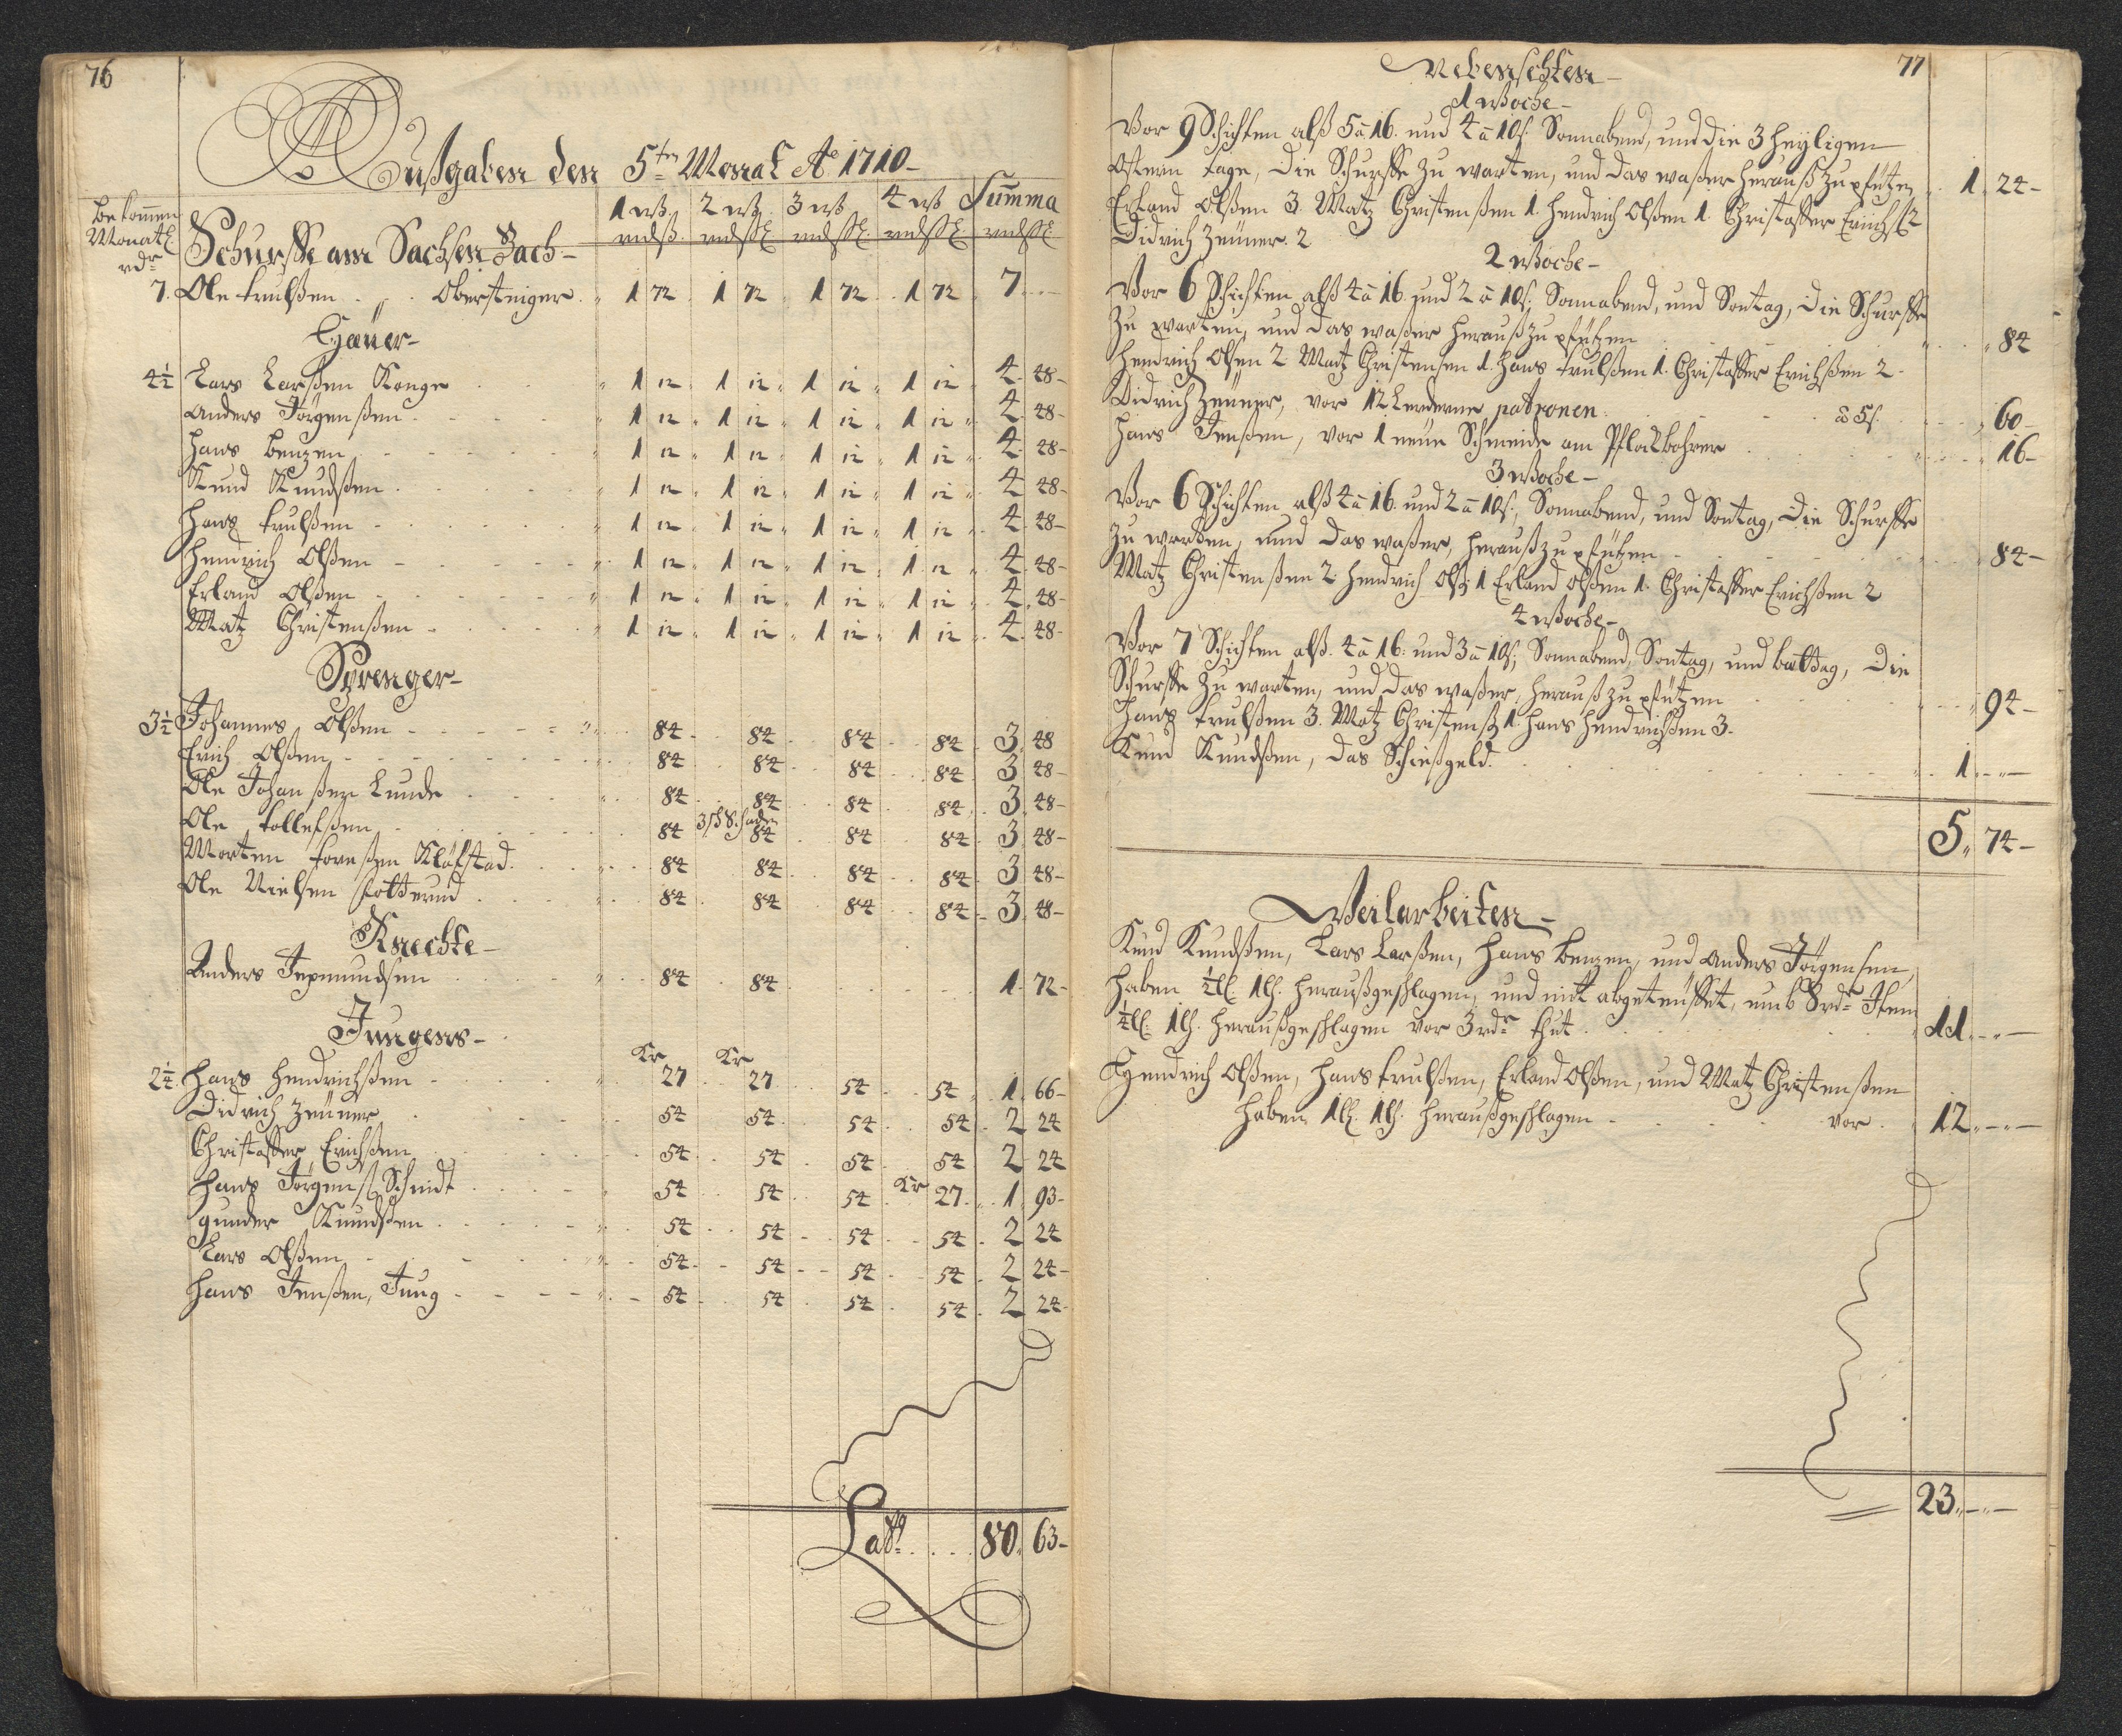 76
Außgaben den 5ten Monat Ao 1710
Bekomen
Monatl
rdr
1 wß 2 wß 3 wß 4 wß Summa
Schurffe am Sachsen Bach
rdßl rdßl rdßl rdßl rdßl
7. Ole Trulßen Obersteiger 1 72 1 72 1 72 1 72 7
Häuer
4½ Lars Larßen Konge 1 12 1 12 1 12 1 12 4 48
Anders Jörgenßen 1 12 1 12 1 12 1 12 4 48
Hans Benzen 1 12 1 12 1 12 1 12 4 48
Knud Knudßen 1 12 1 12 1 12 1 12 4 48
Hans Trulßen 1 12 1 12 1 12 1 12 4 48
Hendrich Olßen 1 12 1 12 1 12 1 12 4 48
Erland Olßen 1 12 1 12 1 12 1 12 4 48
Matz Christenßen 1 12 1 12 1 12 1 12 4 48
Sprenger
3½ Johannes Olßen 84 84 84 84 3 48
Erich Olßen 84 84 84 84 3 48
Ole Johanßen Lunde 84 84 84 84 3 48
Ole Tollefsßen 84 84 84 84 3 48
Morten Toreßen Kläfstad 84 84 84 84 3 48
Ole Nielsen 84 84 84 84 3 48
Knechte
Anders Jepmundsen 84 84 1 72
Jungens
Kr Kr
2¼ Hans Hendrichßen 27 27 54 54 1 66
Didrich Zeuner 54 54 54 54 2 24
Christoffer Erichßen 54 54 54 54 2 24
Hans Jörgenß Schmidt 54 54 54 Kr 27 1 93
Gunder Knudßen 54 54 54 54 2 24
Lars Olßen 54 54 54 54 2 24
Hans Jenßen, Jung 54 54 54 54 2 24
Latq 80 63
77
Nebenschten
1 Woche
Vor 9 Schichten alß 5 a 16. und 4 a 10ß. Sonnabend, und die 3 Heyligen
Ostern Tage, die Schurffe zu warten, und das waßer herauß zu pfützen 1 24
Erland Olßen 3. Matz Christenßen 1. Hendrich Olßen 1. Christoffer Erichß 2
Didrich Zeuner. 2
2 Woche
Vor 6 Schichten alß 4 a 16. und 2 a 10ß. Sonnabend, und Sontag, die Schurffe
zu warten, und das waßer herauß zu pfützen 84
Hendrich Olßen 2 Matz Christensen 1. Hans Trulßen 1. Christoffer Erichßen 2
Didrich Zeuner, vor 12 Lederne patronen a 5ß. 60
Hans Jenßen, vor 1 neue Schneide am Pflockbohrer 16
3 Woche
Vor 6 Schichten alß 4 a 16. und 2 a 10ß, Sonnabend, und Sontag, die Schurffe
zu warten, und das waßer, herauß zu pfützen 84
Matz Christenßen 2 Hendrich Olß 1 Erland Olßen 1. Christoffer Erichßen 2
4 Woche
Vor 7 Schichten alß. 4 a 16. und 3 a 10ß, Sonnabend, Sontag, und bettag, die
Schurffe zu warten, und das waßer herauß zu pfützen 94
Hans Trulßen 3. Matz Christenß 1. Hans Hendrichßen 3.
Knud Knudßen, das Schießgeld. 1
5 74
Weilarbeiten
Knud Knudßen, Lars Larßen, Hans Benzen, und Anders Jörgensen,
haben ½ll. 1lh. heraußgeschlagen, und nicht abgeteuffet, umb 8 rdr Item
¼ll. 1lh. heraußgeschlagen vor 3 rdr thut 11
Hendrich Olßen, Hans Trulßen, Erland Olßen, und Matz Christenßen
haben 1ll. 1lh. heraußgeschlagen vor 12
23